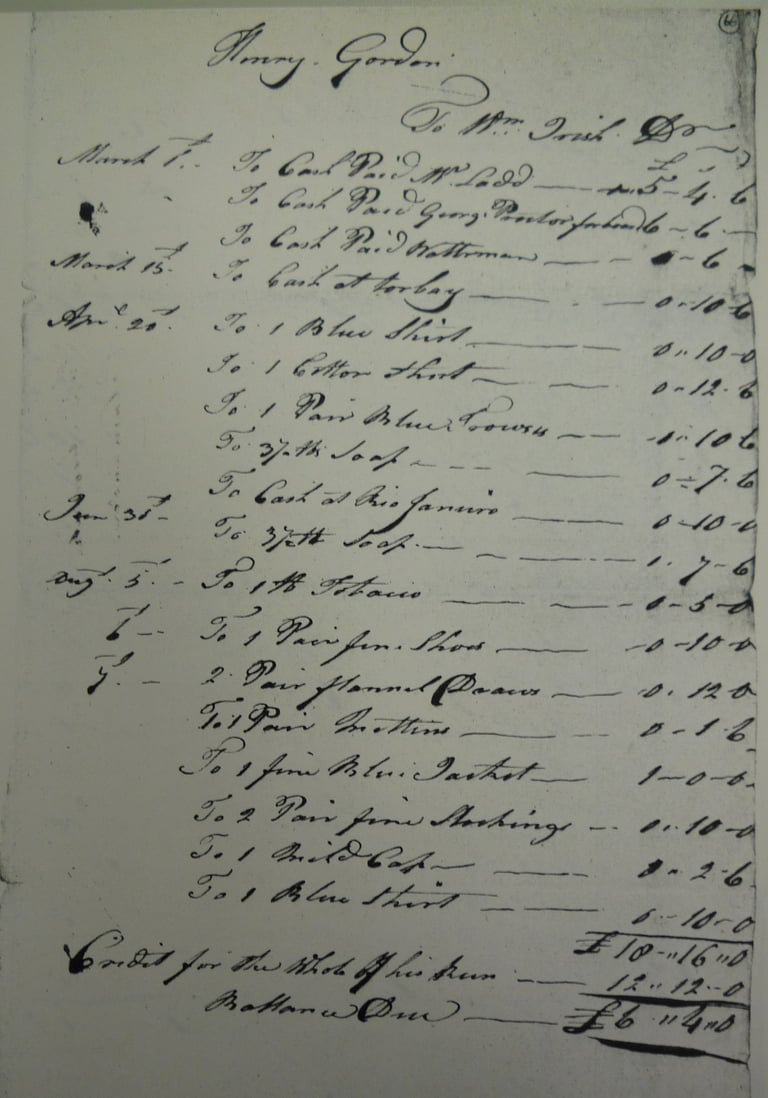 66
Henry. Gordon
To Wm. Irish. Dr
£ s d
March 1st. To Cash Paid Mr Ladd — 5 - 4 . 6
To Cash Paid Georg. Proctor for 6 - 6 . —
To Cash Paid Watterman — 0 - 6 -
March 15t. To Cash at torbay — 0 - 10 - 6
Apr. 20t. To 1 Blue Shirt — 0 " 10 - 0
To 1 Cotton Shirt — 0 - 12 . 6
To 1 Pair Blue Trowses — 0 " 10 6
To 3½ lb Soap — 0 - 7 . 6
To Cash at Rio Janiuro — 0 - 10 - 0
June 30t - To 3½ lb Soap. — 7 - 6
Aug. 5t. - To 1 lb Tobacco — 0 - 5 - 0
6t — To 1 Pair fine Shoes — 0 - 10 - 0
7t. - 2 Pair flannel Draws — 0 . 12 0
To 1 Pair Mettins — 0 - 1 - 6
To 1 fine Blue Jacket — 1 - 0 - 0
To 2 Pair fine Stockings — 0 " 10 - 0
To 1 Cap — 0 " 2 - 6
To 1 Blue Shirt — 0 - 10 - 0
£ 18 - " 16 " 0
Credit for the Whole of his Run — 12 " 12 - 0
Ballance Due — £ 6 " 4 " 0